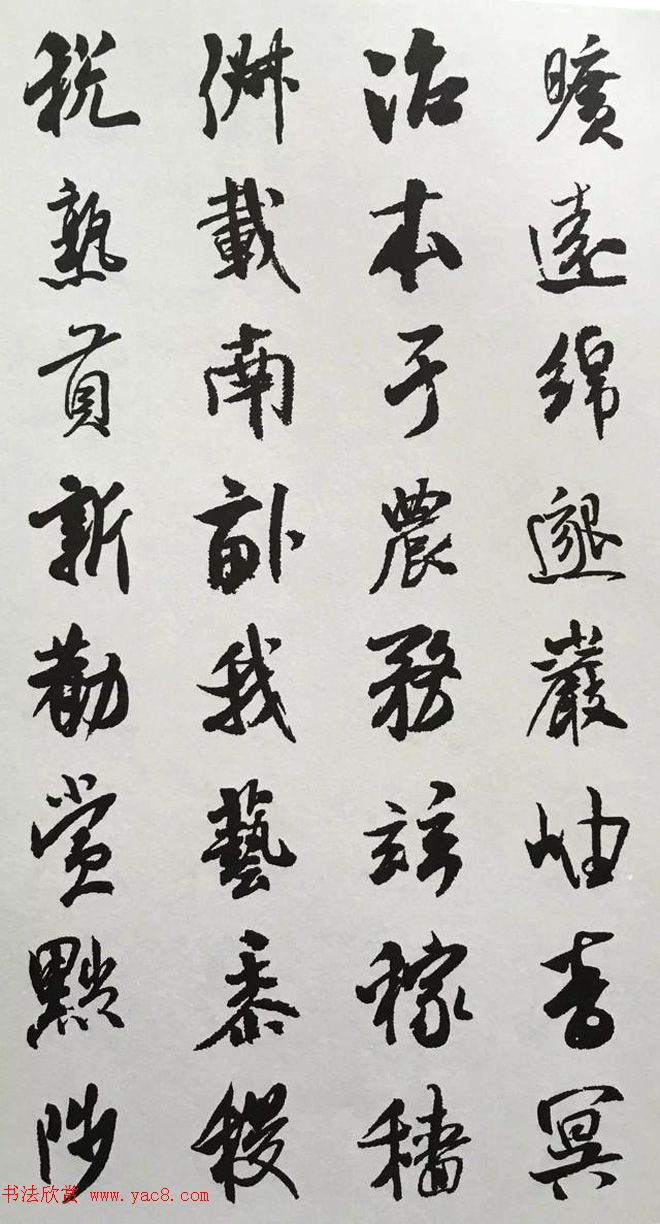 曠遠綿邈巖岫杳冥
治本于農務茲稼穡
俶載南畝我藝黍稷
税熟貢新勸賞黜陟
书法欣赏 www.yac8.com